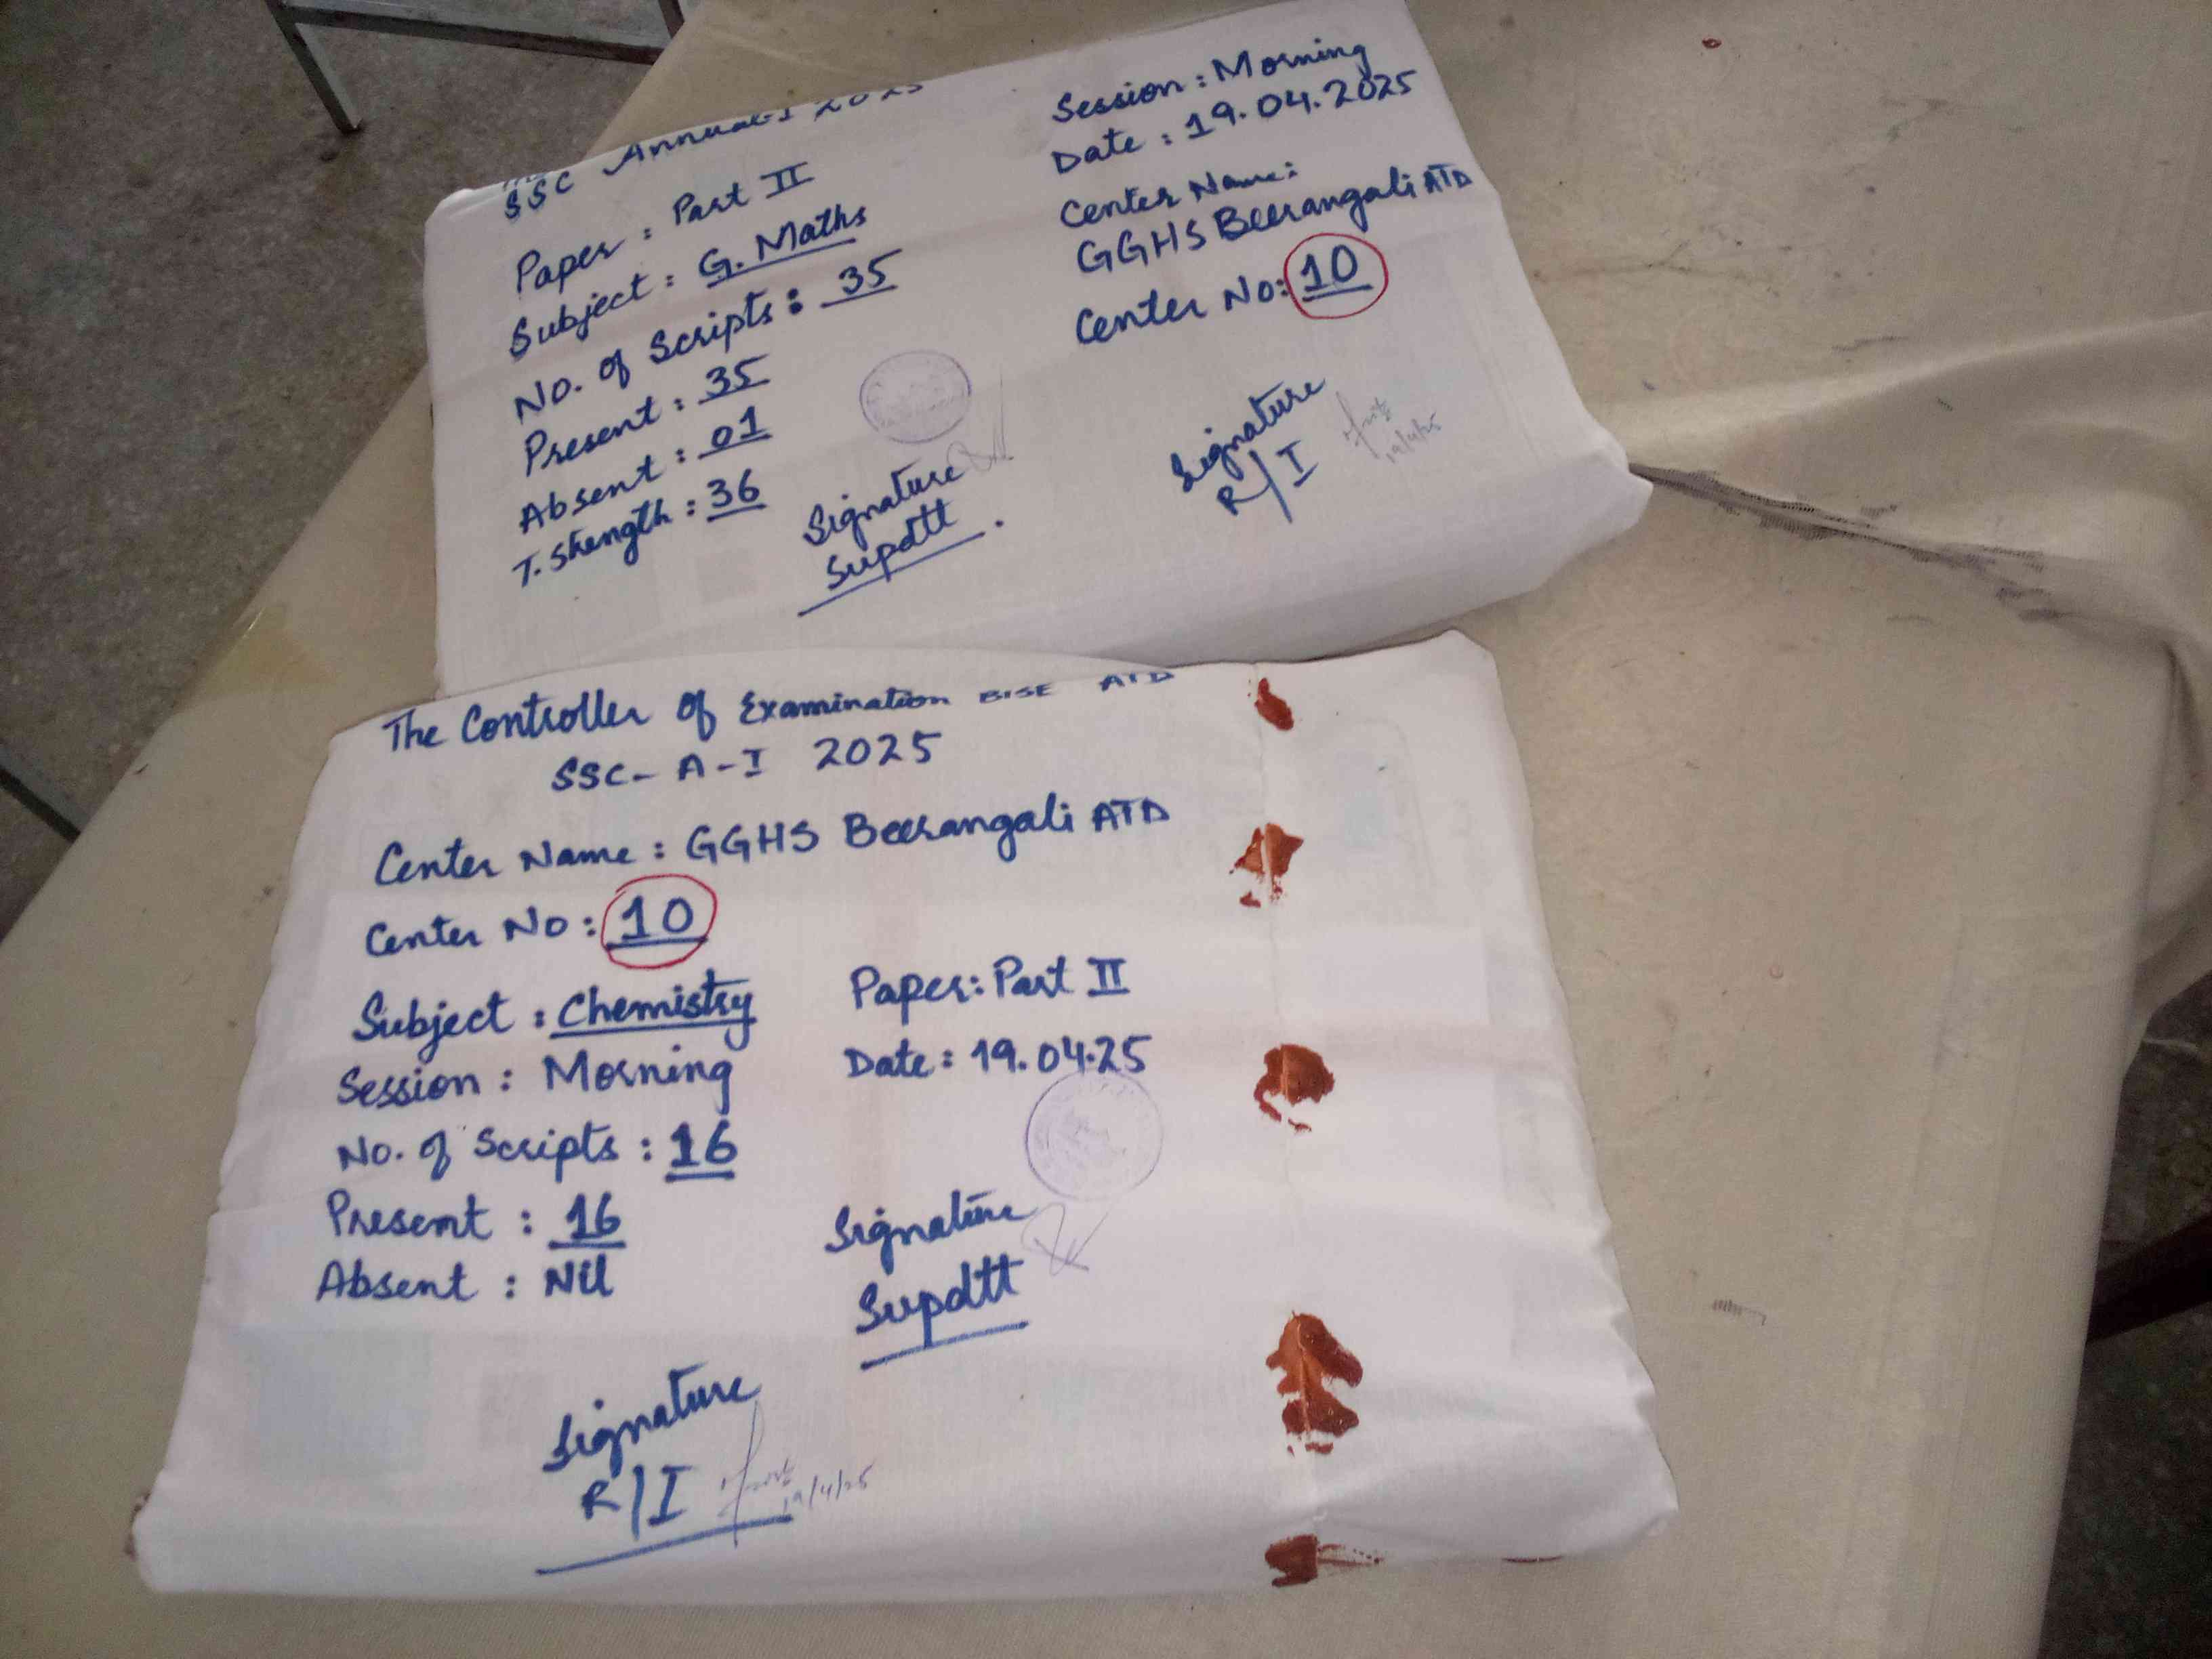 SSC Annual-I 2025
Paper : Part II
Subject : G. Maths
No. of Scripts : 35
Present : 35
Absent : 01
T. Strength : 36
Signature
Supdtt.
Session : Morning
Date : 19.04.2025
Center Name :
GGHS Beerangali ATD
Center No: 10
Signature
R/I
19/4/25
The Controller of Examination BISE ATD
SSC- A-I 2025
Center Name : GGHS Beerangali ATD
Center No : 10
Subject : Chemistry
Paper: Part II
Session : Morning
Date : 19.04.25
No. of Scripts : 16
Present : 16
Absent : Nil
Signature
Supdtt
Signature
R/I
19/4/25